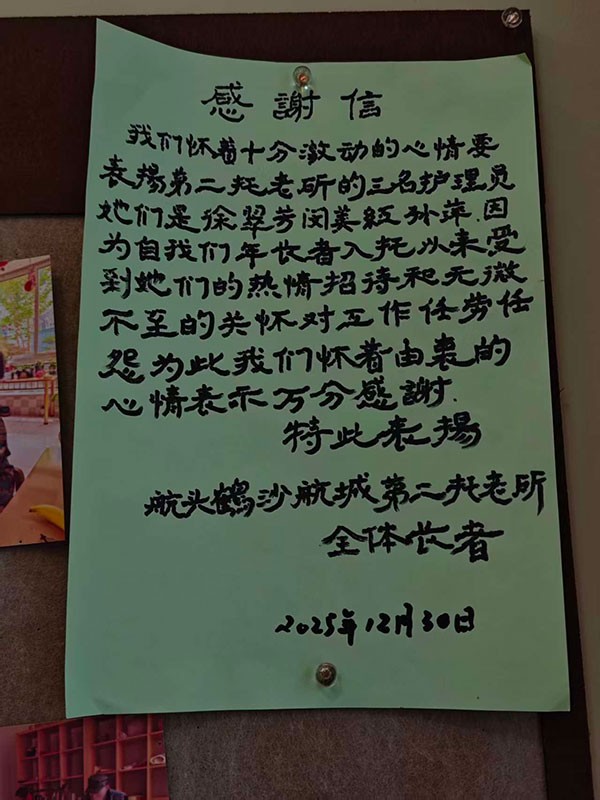 感謝信
我们怀着十分激动的心情要
表揚第二托老所的三名护理员
她们是徐翠芳闵美红孙萍.因
为自我们年长者入托以来受
到她们的热情招待和无微
不至的关怀对工作任劳任
怨为此我们怀着由衷的
心情表示万分感謝.
特此表揚
航头鹤沙航城第二托老所
全体长者
2025年12月30日